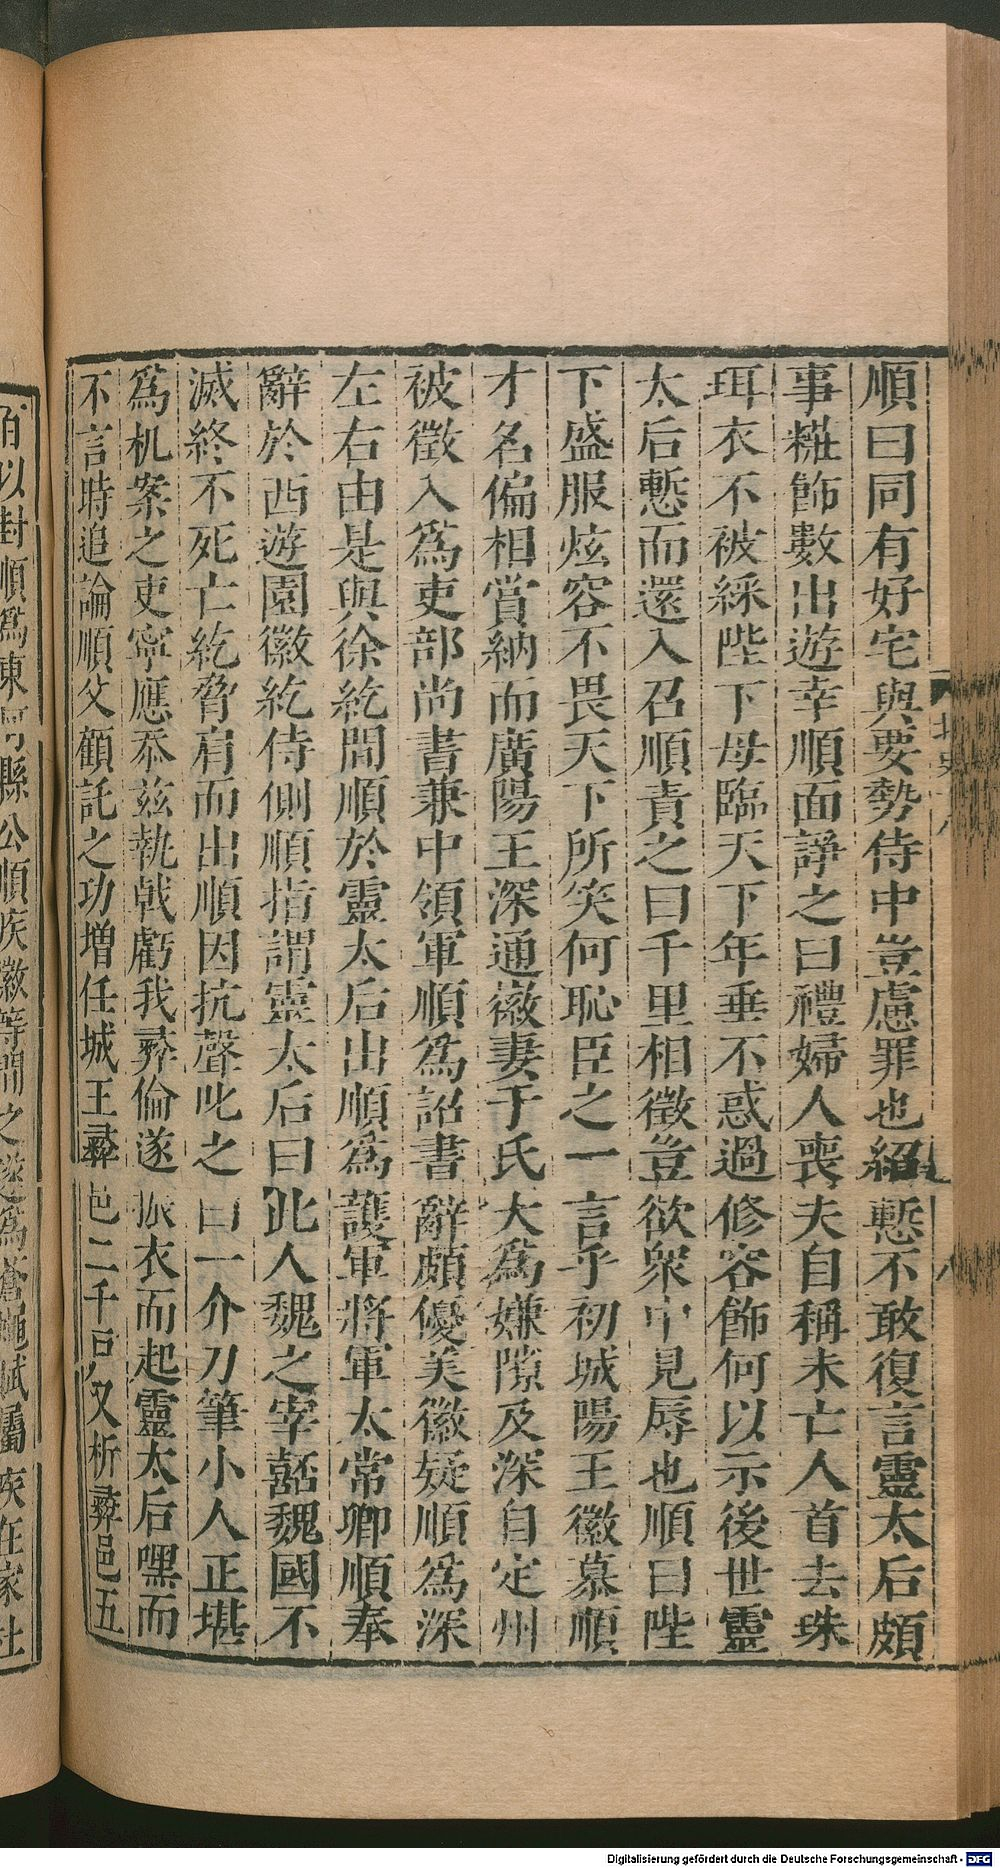 順曰同有好宅與要勢侍中豈慮罪也紹慙不敢復言靈太后頗
事糚飾數出遊幸順面諍之曰禮婦人喪夫自稱未亡人首去珠
珥衣不被綵陛下母臨天下年垂不惑過修容飾何以示後世靈
太后慙而還入召順責之曰千里相徵豈欲衆中見辱也順曰陛
下盛服炫容不畏天下所笑何恥臣之一言乎初城陽王徽慕順
才名偏相賞納而廣陽王深通徽妻于氏大為嫌隙及深自定州
被徵入爲吏部尚書兼中領軍順爲詔書辭頗優美徽疑順爲深
左右由是與徐紇間順於靈太后出順爲護軍將軍太常卿順奉
辭於西遊園徽紇侍側順指謂靈太后曰此人魏之宰嚭魏國不
滅終不死亡紇脅肩而出順因抗聲叱之曰一介刀筆小人正堪
爲机案之吏寧應忝茲執戟虧我彛倫遂振衣而起靈太后嘿而
不言時追論順父顧託之功增任城王彛邑二千戸又析彛邑五
百以封順爲東阿縣公順疾徽等間之遂爲蒼蠅賦屬疾在家杜
北史 八
Digitalisierung gefördert durch die Deutsche Forschungsgemeinschaft - DFG